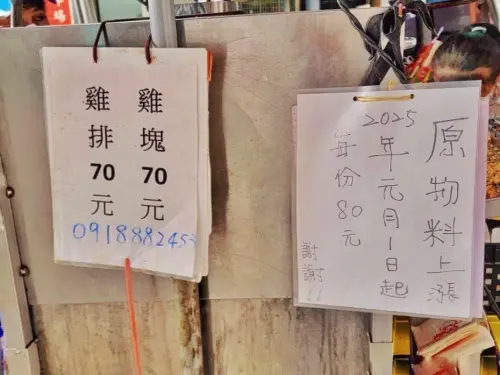 雞塊70元
雞排70元
0918882453
原物料上漲
2025年元月1日起
每份80元
謝謝!!